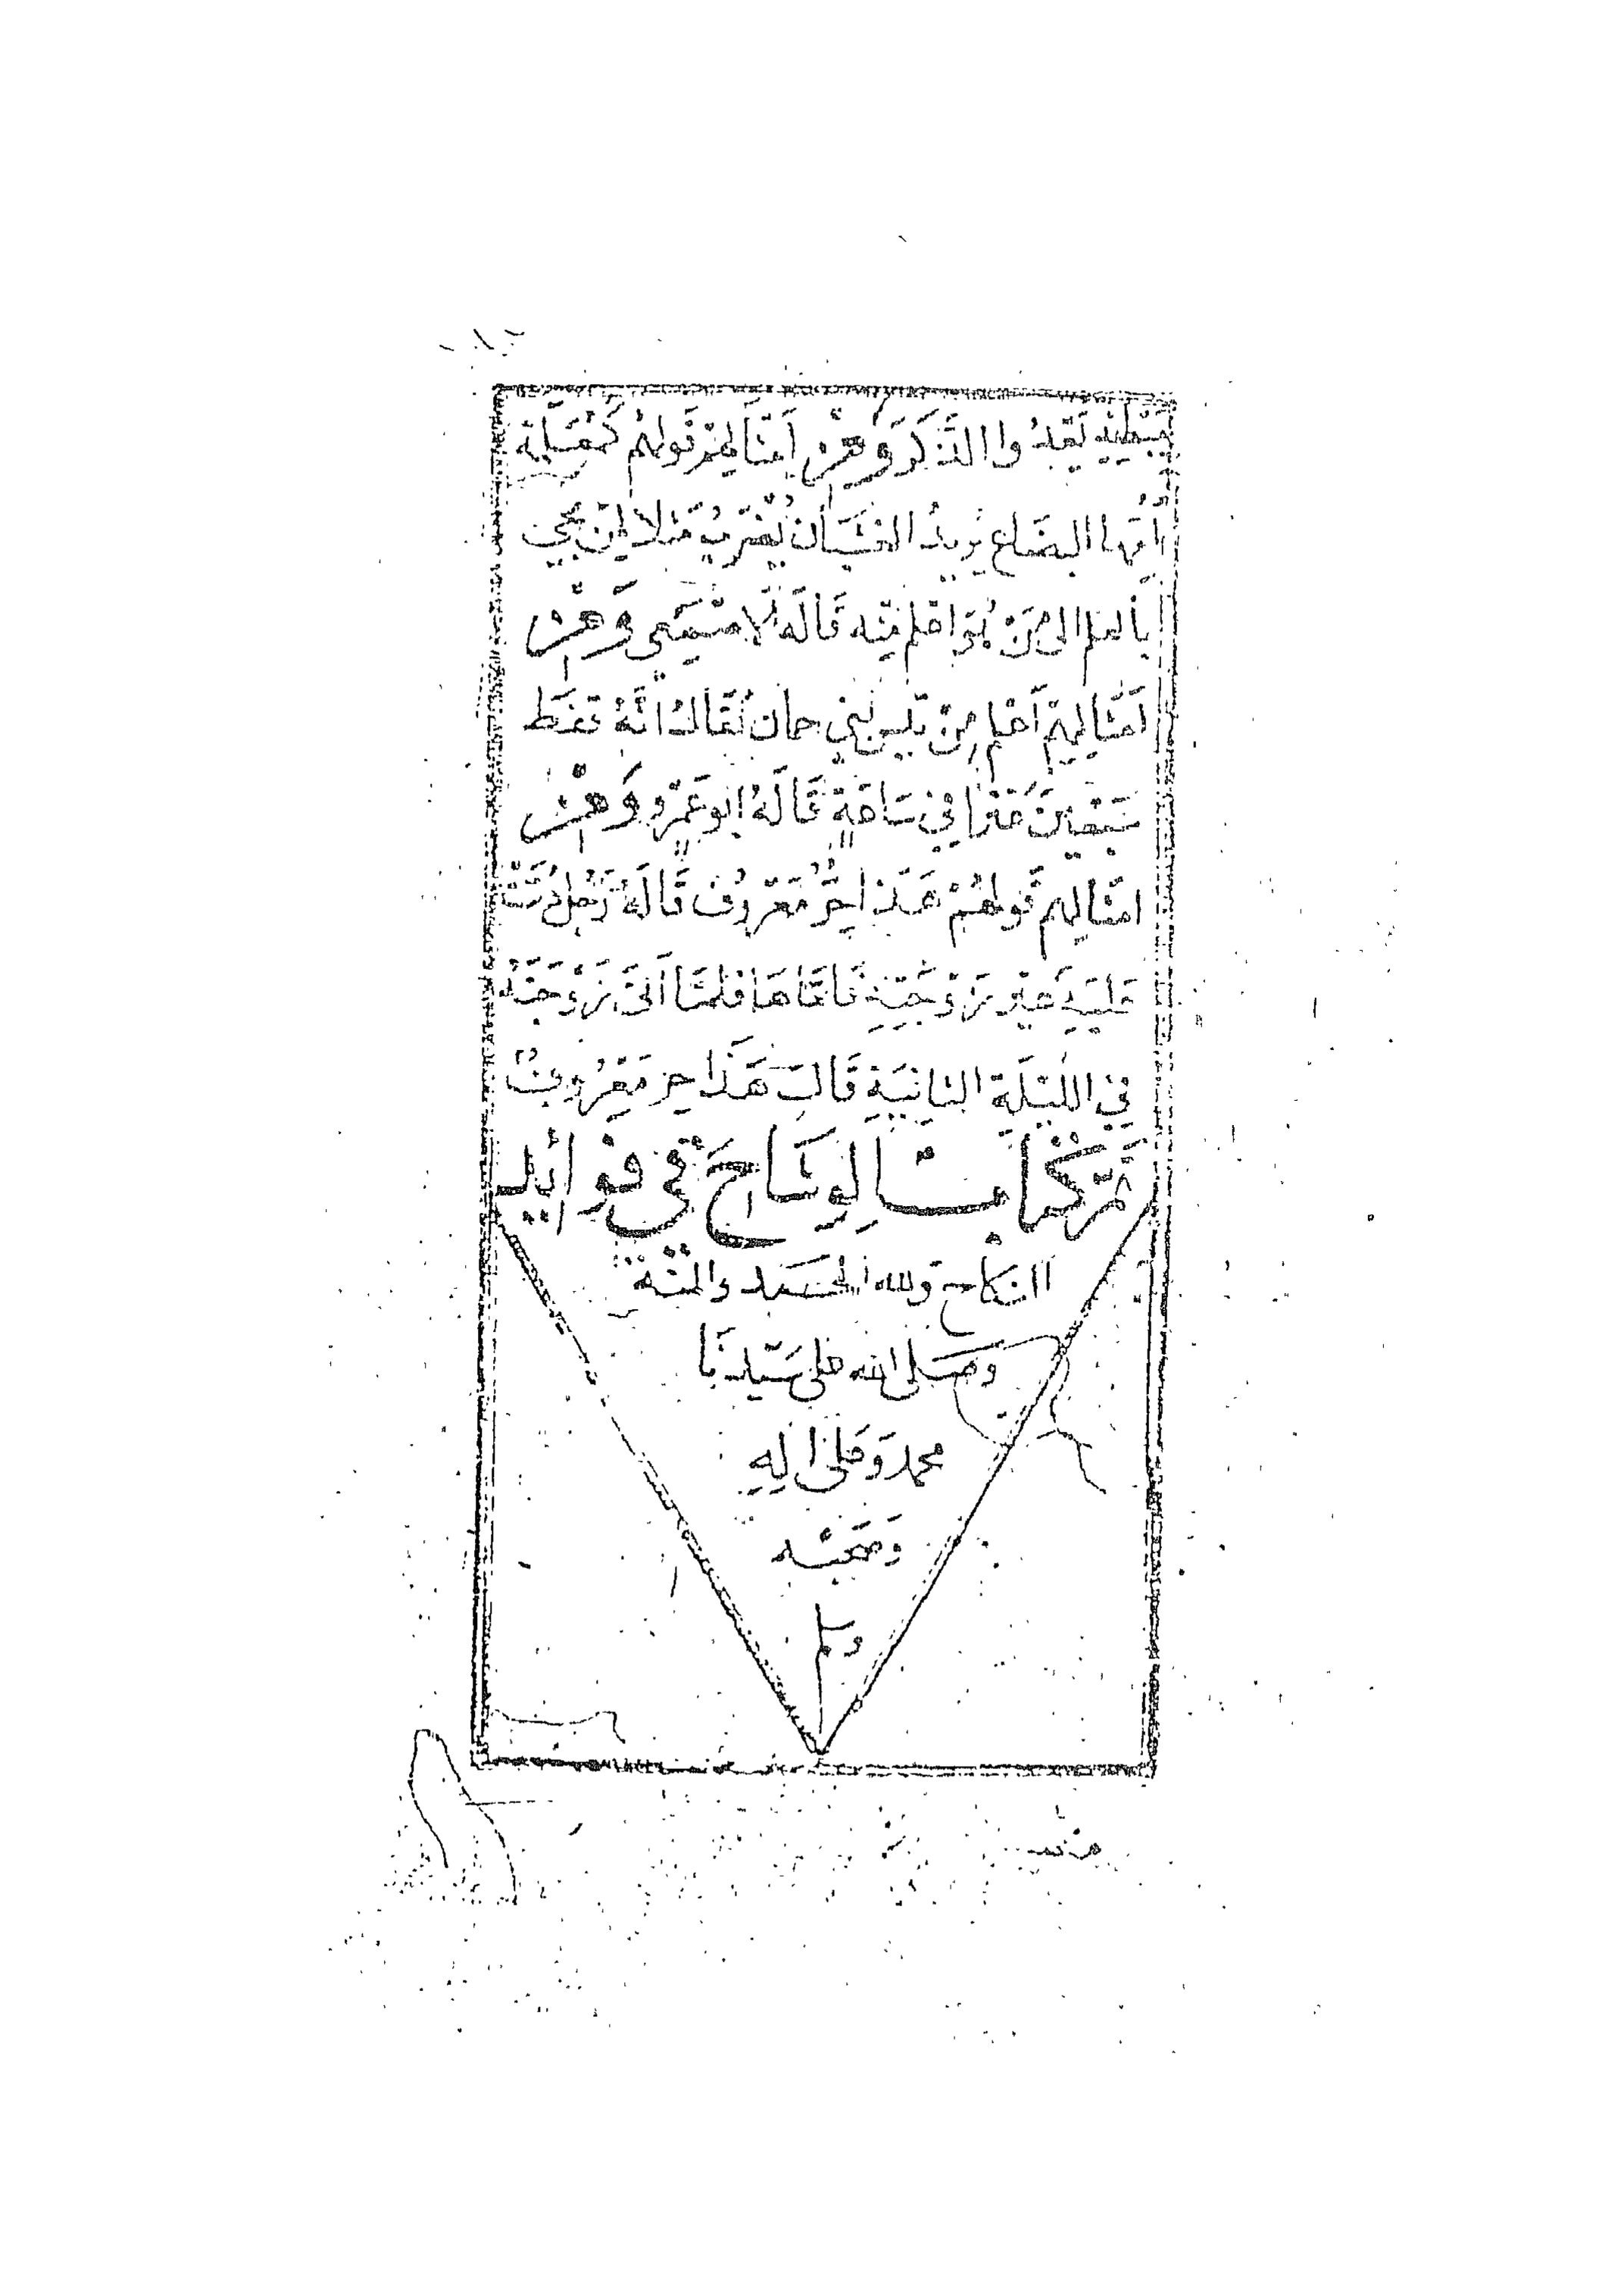 يعدوا الذكر ومن امثالهم قولهم كمعلمة
أمها البضاع يريد الغشيان يضرب مثلا لمن يجي
بالعلم الى من هو اعلم منه قاله الاصمعي ومن
امثالهم اغلم من تيس بني حمان يقال انه قفط
سبعين عنزا في ساعة قاله ابو عمرو ومن
امثالهم قولهم هذا حر معروف قاله رجل
عليه غير زوجته فاتاها فلما اتى زوجته
في الليلة الثانية قالت هذا حر معروف
تم كتاب الوشاح في فوائد
النكاح ولله الحمد والمنة
وصلى الله على سيدنا
محمد وعلى اله
وصحبه
وسلم